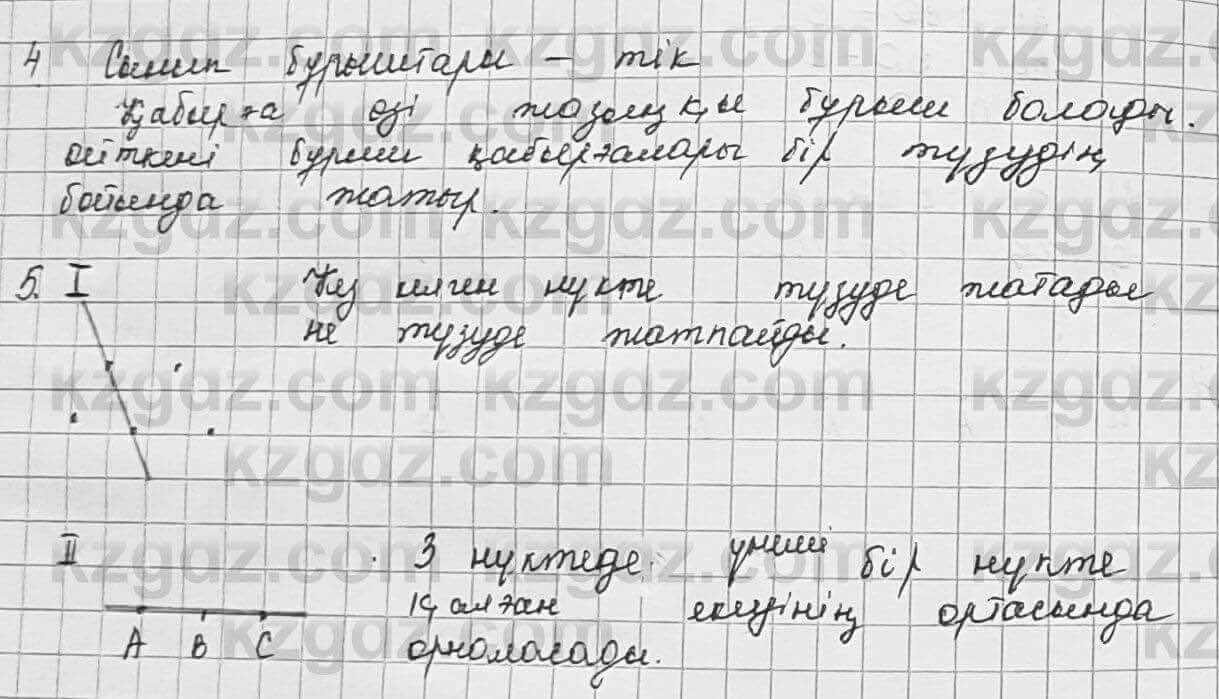 4 Сынып бұрыштары – тік
Қабырға өзі жазыңқы бұрыш болады.
өйткені бұрыш қабырғалары бір түзудің
бойында жатыр.
5. I Кез келген нүкте түзуде жатады
не түзуде жатпайды.
II 3 нүктеде үшінші бір нүкте
қалған екеуінің ортасында
A B C орналасады.
kzgdz.com